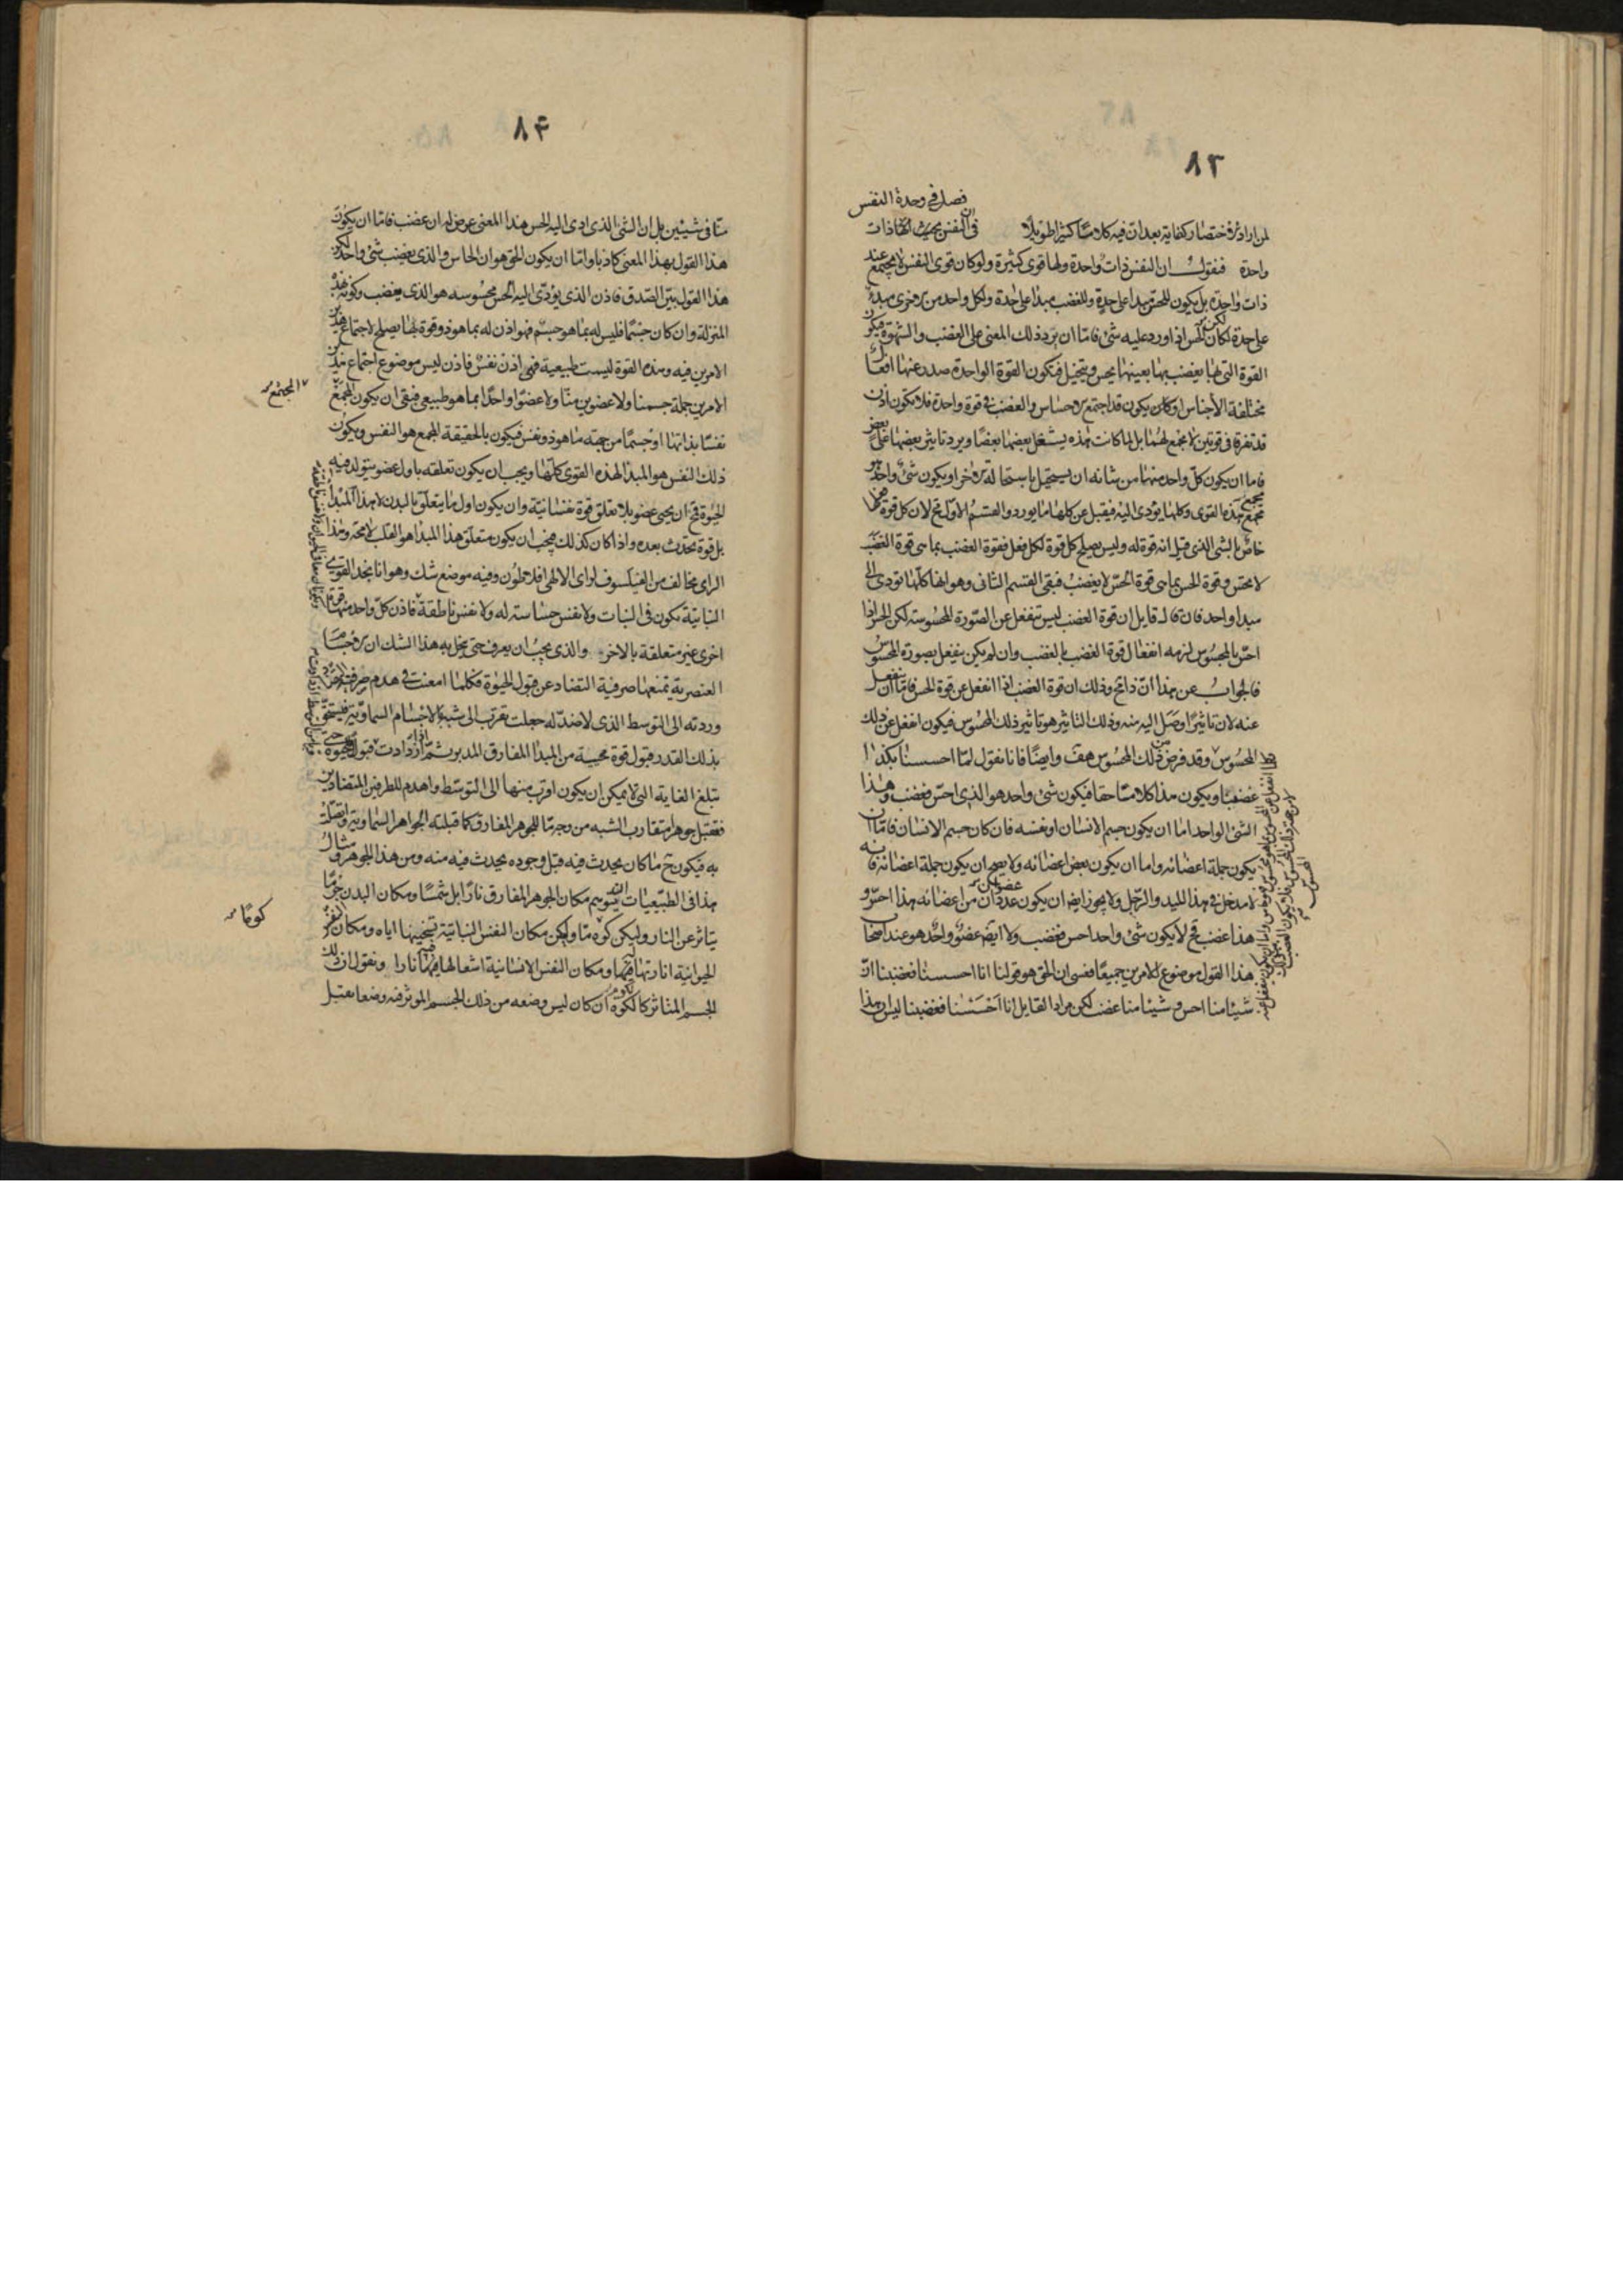 ٨٣
فصل فى وحدة النفس
لمن اراد الاختصار كفاية بعد ان فيه كلاما كثيرا طويلا فى ان النفس ذات
واحدة فنقول ان النفس ذات واحدة ولها قوى كثيرة ولو كان قوى النفس لا يجتمع عند
ذات واحدة بل يكون للحس مبدا على حدة وللغضب مبدا على حدة ولكل واحد من الاخرى مبدء
على حدة لكان الحس اذا ورد عليه شئ فاما ان يرد ذلك المعنى على الغضب والشهوة فيكون
القوة التى بها يغضب بها بعينها يحس ويتخيل فيكون القوة الواحدة صدر عنها افعال
مختلفة الأجناس او كان يكون قد اجتمع الاحساس والغضب فى قوة واحدة فلا يكون اذن
قد تفرقا فى قوتين لا مجمع لهما بل لما كانت هذه يشغل بعضها بعضا ويرد تاثير بعضها على بعض
فاما ان يكون كل واحد منها من شانه ان يستحيل باستحالة الاخر او يكون شئ واحد هو
مجمع هذه القوى وكلها يؤدى اليه فيقبل عن كلها ما يورد والقسم الاول مح لان كل قوة فعلها
خاص بالشئ الذى قيل انه قوة له وليس يصلح كل قوة لكل فعل فقوة الغضب بما هى قوة الغضب
لا تحس وقوة الحس بما هى قوة الحس لا يغضب فبقى القسم الثانى وهو انها كلها تودى الى
مبدا واحد فان قال قايل ان قوة الغضب ليس تنفعل عن الصورة المحسوسة لكن الحس اذا
احس بالمحسوس لزمه انفعال قوة الغضب بالغضب وان لم يكن ينفعل بصورة المحسوس
فالجواب عن هذا ان ذا مح وذلك ان قوة الغضب اذا انفعل عن قوة الحس فاما ان ينفعل
عنه لان تاثيرا وصل اليه منه وذلك التاثير هو تاثير ذلك المحسوس فيكون انفعل عن ذلك
المحسوس وقد فرض ذلك المحسوس هف وايضا فانا نقول لما احسسنا بكذا
غضبنا ويكون هذا كلاما حقا فيكون شئ واحد هو الذى احس فغضب وهذا
الشئ الواحد اما ان يكون جسم الانسان او نفسه فان كان جسم الانسان فاما ان
يكون جملة اعضائه واما ان يكون بعض اعضائه ولا يصح ان يكون جملة اعضائه فانه
لا مدخل فى هذا لليد والرجل ولا يجوز ايض ان يكون عضوان من اعضائه هذا احس و
هذا غضب فح لا يكون شئ واحد احس فغضب ولا ايض عضو واحد هو عند اصحاب
هذا القول موضوع للامرين جميعا فعسى ان الحق هو قولنا انا احسسنا فغضبنا ان
شيئا منا احس و شيئا منا غضب لكن مراد القايل انا احسسنا فغضبنا ليس ان هذا
٨۴
منا فى شيئين بل ان الشئ الذى ادى اليه الحس هذا المعنى عرض له ان غضب فاما ان يكون
هذا القول بهذا المعنى كاذبا واما ان يكون الحق هو ان الحاس والذى يغضب شئ واحد لكن
هذا القول بين الصدق فاذن الذى يؤدى اليه الحس محسوسه هو الذى يغضب وكونه بهذه
المنزلة وان كان جسما فليس له بما هو جسم فهو اذن له بما هو ذو قوة بها يصلح لاجتماع هذين
الامرين فيه وهذه القوة ليست طبيعية فهى اذن نفس فاذن ليس موضوع اجتماع هذين
الامرين جملة جسمنا ولا عضوين منا ولا عضوا واحدا بما هو طبيعى فبقى ان يكون المجمع
المجتمع
نفسا بذاتها او جسما من جهة ما هو ذو نفس فيكون بالحقيقة المجمع هو النفس ويكون
ذلك النفس هو المبدا لهذه القوى كلها ويجب ان يكون تعلقه باول عضو يتولد فيه
الحيوة فمح ان يحيى عضو بلا تعلق قوة نفسانية وان يكون اول ما يتعلق بالبدن لا هذا المبدا
بل قوة تحدث بعده واذا كان كذلك فيجب ان يكون متعلق هذا المبدا هو القلب لا محة وهذا
الراى مخالف من الفيلسوف لراى الالهى افلاطون وفيه موضع شك وهو انا نجد القوى
النباتية تكون فى النبات ولا نفس حساسة له ولا نفس ناطقة فاذن كل واحد منها قوة
اخرى غير متعلقة بالاخر والذى يجب ان يعرف حتى ينحل به هذا الشك ان الاجسام
العنصرية تمنعها صرفية التضاد عن قبول الحيوة فكلما امعنت فى هدم صرفية التضاد
وردته الى التوسط الذى لا ضد له جعلت تقرب الى شبه بالاجسام السماوية فيستحق
بذلك القدر قبول قوة محيية من المبدا المفارق المدبر ثم اذا ازدادت قبول الحيوة حتى
تبلغ الغاية التى لا يمكن ان يكون اقرب منها الى التوسط واهدم للطرفين المتضادين
فتقبل جوهرا متقارب الشبه من وجه ما للجوهر المفارق كما قبلته الجواهر السماوية واتصلت
به فيكون ح ما كان يحدث فيه قبل وجوده يحدث فيه منه ومن هذا الجوهر ومثال
هذا فى الطبيعيات ليتوهم مكان الجوهر المفارق نارا بل شمسا ومكان البدن جرما
يتاثر عن النار وليكن كوة ما وليكن مكان النفس النباتية تسخينها اياه ومكان النفس
كوما
الحيوانية انارتها فيها ومكان النفس الانسانية اشعالها فيها نارا ونقول ان ذلك
الجسم المتاثر كالكوة ان كان ليس وضعه من ذلك الجسم الموثر فيه وضعا يقبل